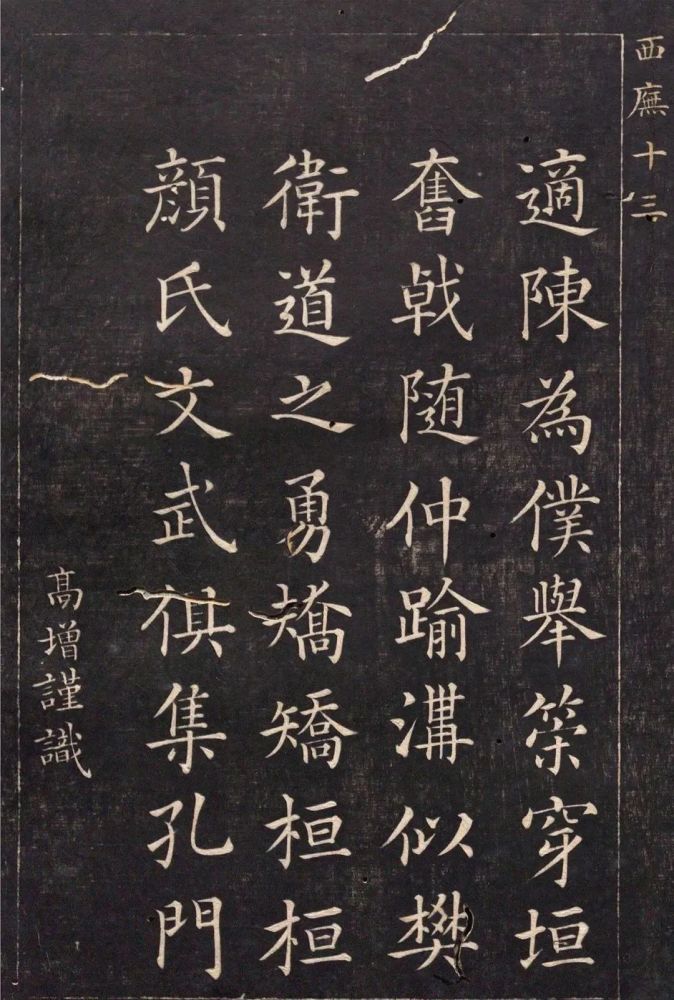 西廡十三
適陳為僕舉策穿垣
奮戟随仲踰溝似樊
衛道之勇矯矯桓桓
顔氏文武俱集孔門
高增謹識